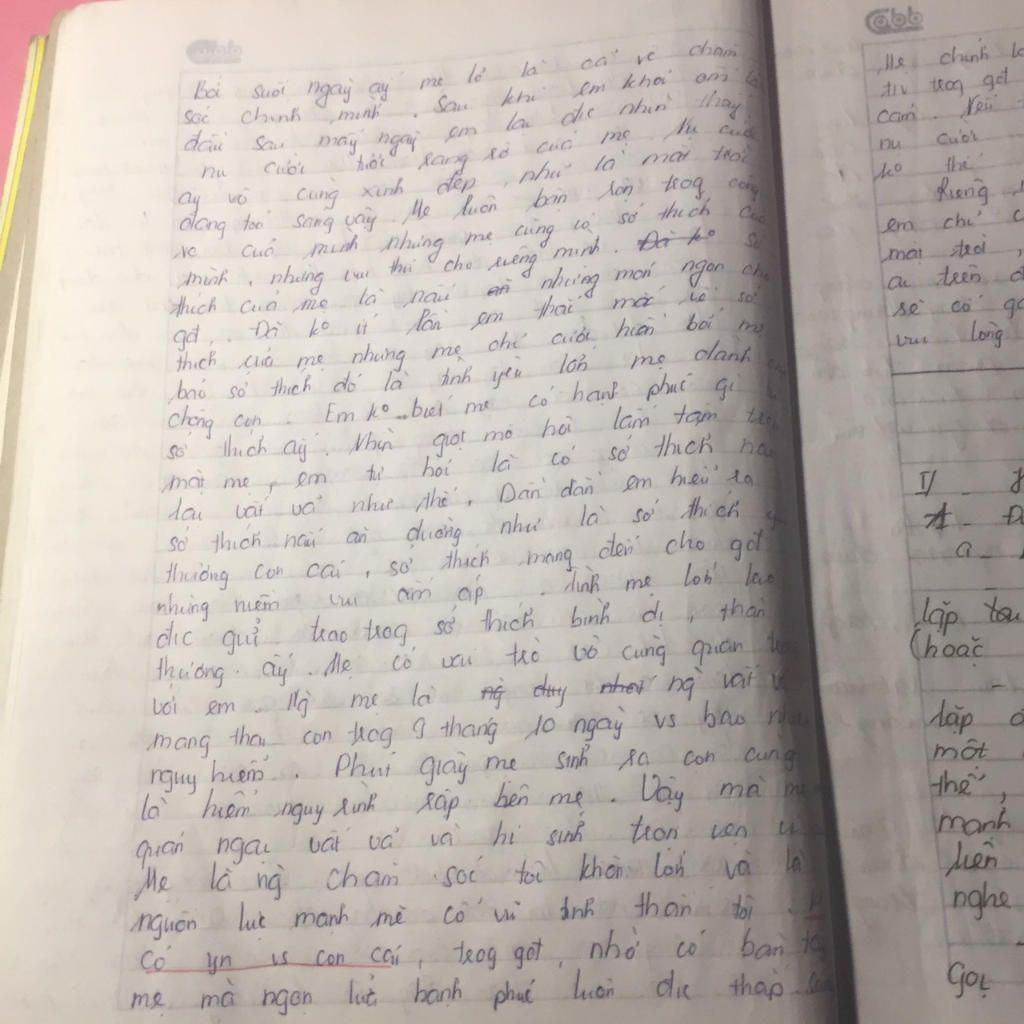 Bởi suốt ngày ấy mẹ lo là cả về chăm
sóc chính mình. Sau khi em khỏi ốm
đầu sau mấy ngày em lại đc nhìn thấy
nụ cười tươi sáng rỡ của mẹ. Nụ cười
ấy vô cùng xinh đẹp, như là mặt trời
đang toả sáng vậy. Mẹ luôn bận rộn trog công
vc của mình nhưng mẹ cũng có sở thích của
mình, những thú cho riêng mình. Đã ko Sở
thích của mẹ là nấu ăn những món ngon cho
gđ. Đã ko ít lần em thắc mắc về sở
thích của mẹ nhưng mẹ chỉ cười hiền bởi mẹ
bảo sở thích đó là tình yêu lớn mẹ dành cho
chồng con. Em ko biết mẹ có hạnh phúc gì
sở thích ấy. Nhìn giọt mồ hôi lấm tấm trên
mặt mẹ, em tự hỏi là có sở thích nào
lại vất vả như thế. Dần dần em hiểu ra
sở thích nấu ăn dường như là sở thích
thương con cái, sở thích mang đến cho gđ
những niềm vui ấm áp. Tình mẹ lớn lao
đc gửi trao trog sở thích bình dị, thân
thương ấy. Mẹ có vai trò vô cùng quan trọng
với em. Ng mẹ là ng duy nhất ng vất vả
mang thai con trog 9 tháng 10 ngày vs bao nhiêu
nguy hiểm. Phút giây mẹ sinh ra con cũng
là hiểm nguy rình rập bên mẹ. Vậy mà mẹ
quản ngại vất vả và hi sinh trọn vẹn vì
Mẹ là ng chăm sóc tôi khôn lớn và là
nguồn lực mạnh mẽ cổ vũ tinh thần tôi.
Có yn vs con cái, trog gđ, nhờ có bàn tay
mẹ mà ngọn lửa hạnh phúc luôn đc thắp sáng
Mẹ chính là
trog gđ
cảm. Nếu
nụ cười
ko thể
Riêng
em chỉ
mặt trời,
ai trên
sẽ cố gắ
vui lòng
II -
A - Đ
a -
lặp
(hoặc
-
lặp
một
thể,
mạnh
liên
nghe
-
Gọi